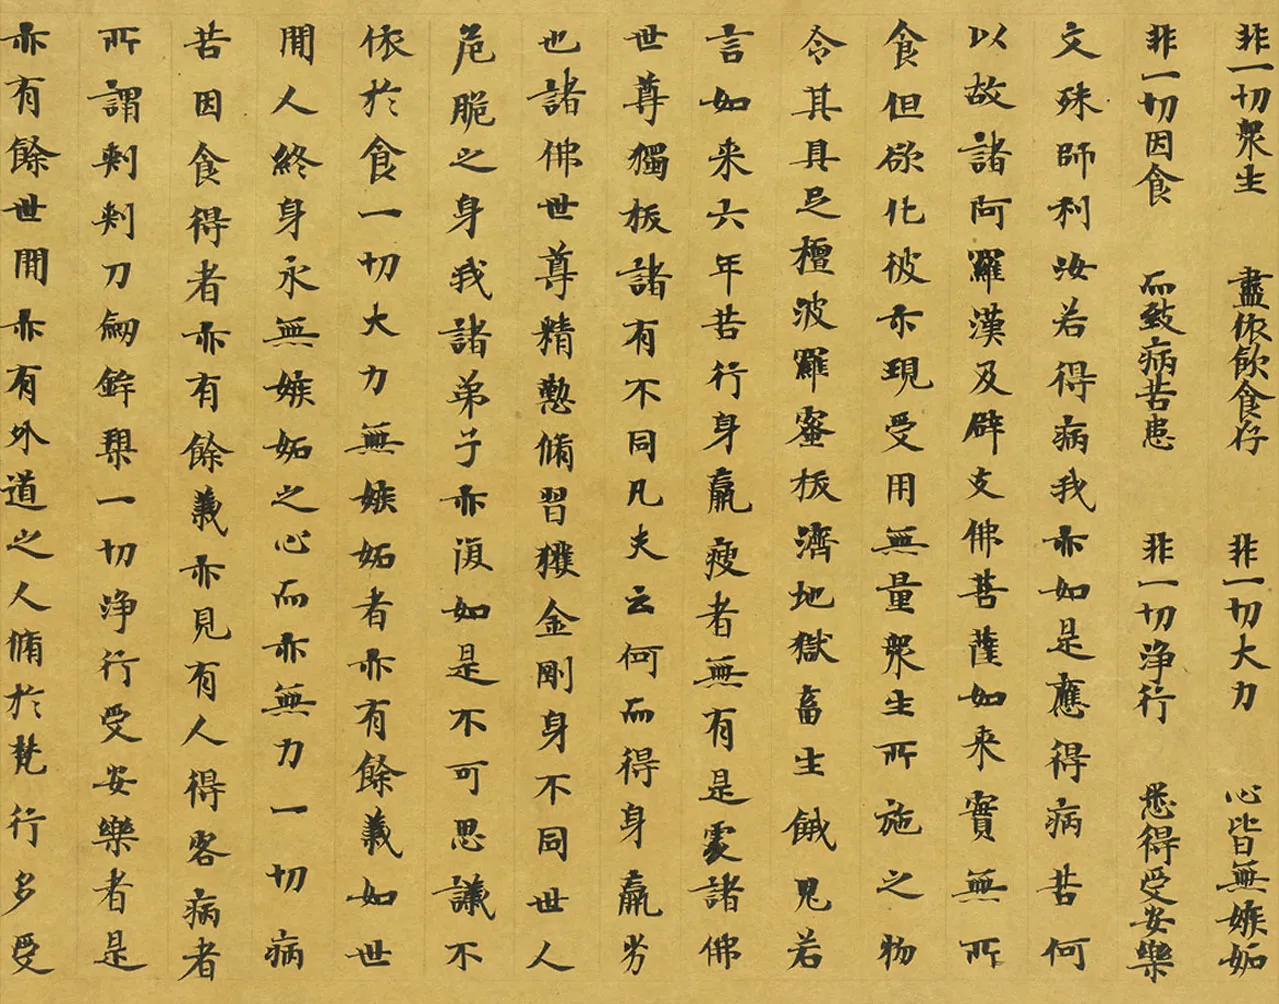 非一切衆生 盡依飲食存 非一切大力 心皆無嫉妬
非一切因食 而致病苦患 非一切浄行 悉得受安樂
文殊師利汝若得病我亦如是應得病苦何
以故諸阿羅漢及辟支佛菩薩如来實無所
食但欲化彼亦現受用無量衆生所施之物
令其具足檀波羅蜜扳濟地獄畜生餓鬼若
言如来六年苦行身羸瘦者無有是處諸佛
世尊獨扳諸有不同凡夫云何而得身羸劣
也諸佛世尊精懃脩習獲金剛身不同世人
危脆之身我諸弟子亦復如是不可思議不
依於食一切大力無嫉妬者亦有餘義如世
閒人終身永無嫉妬之心而亦無力一切病
苦因食得者亦有餘義亦見有人得客病者
所謂刾刾刀劒鉾矟一切浄行受安樂者是
亦有餘世閒亦有外道之人脩於梵行多受